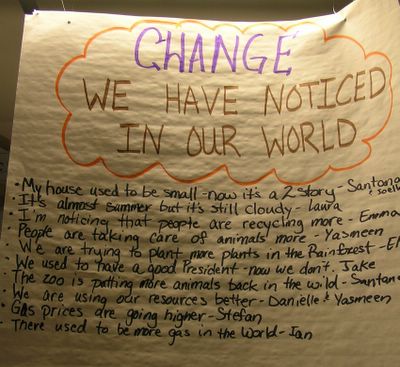 CHANGE
WE HAVE NOTICED
IN OUR WORLD
• My house used to be small - now it's a 2 story - Santana
• It's almost summer but it's still cloudy - Laura
• I'm noticing that people are recycling more - Emma
• People are taking care of animals more - Yasmeen
• We are trying to plant more plants in the Rainforest -
• We used to have a good President - now we don't. Jake
• The zoo is putting more animals back in the wild - Santana
• We are using our resources better - Danielle & Yasmeen
• Gas prices are going higher - Stefan
• There used to be more gas in the world - Ian